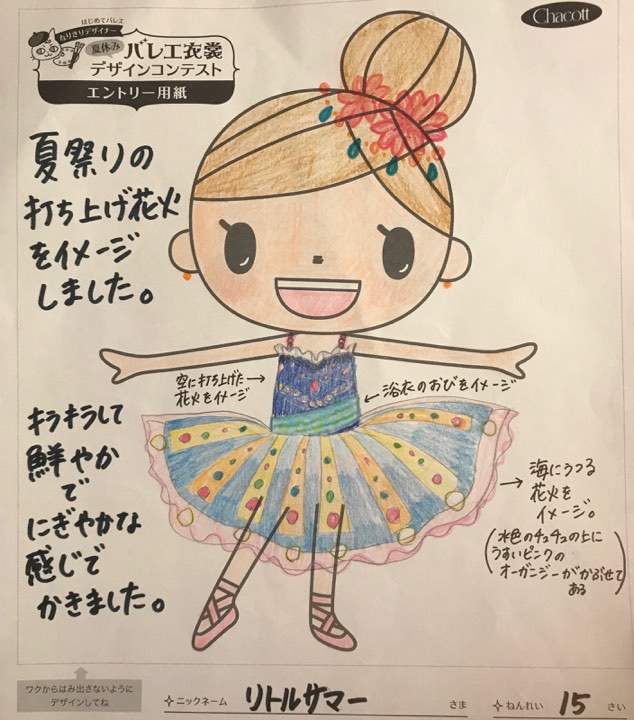 はじめてバレエ
なりきりデザイナー
夏休み バレエ衣裳
デザインコンテスト
エントリー用紙
Chacott
夏祭りの
打ち上げ花火
をイメージ
しました。
空に打ち上げた
花火をイメージ
浴衣のおびをイメージ
キラキラして
鮮やか
で
にぎやかな
感じで
かきました。
海にうつる
花火を
イメージ。
(水色のチュチュの上に
うすいピンクの
オーガンジーがかぶせて
ある)
ワクからはみ出さないように
デザインしてね
ニックネーム リトルサマー さま
ねんれい 15 さい